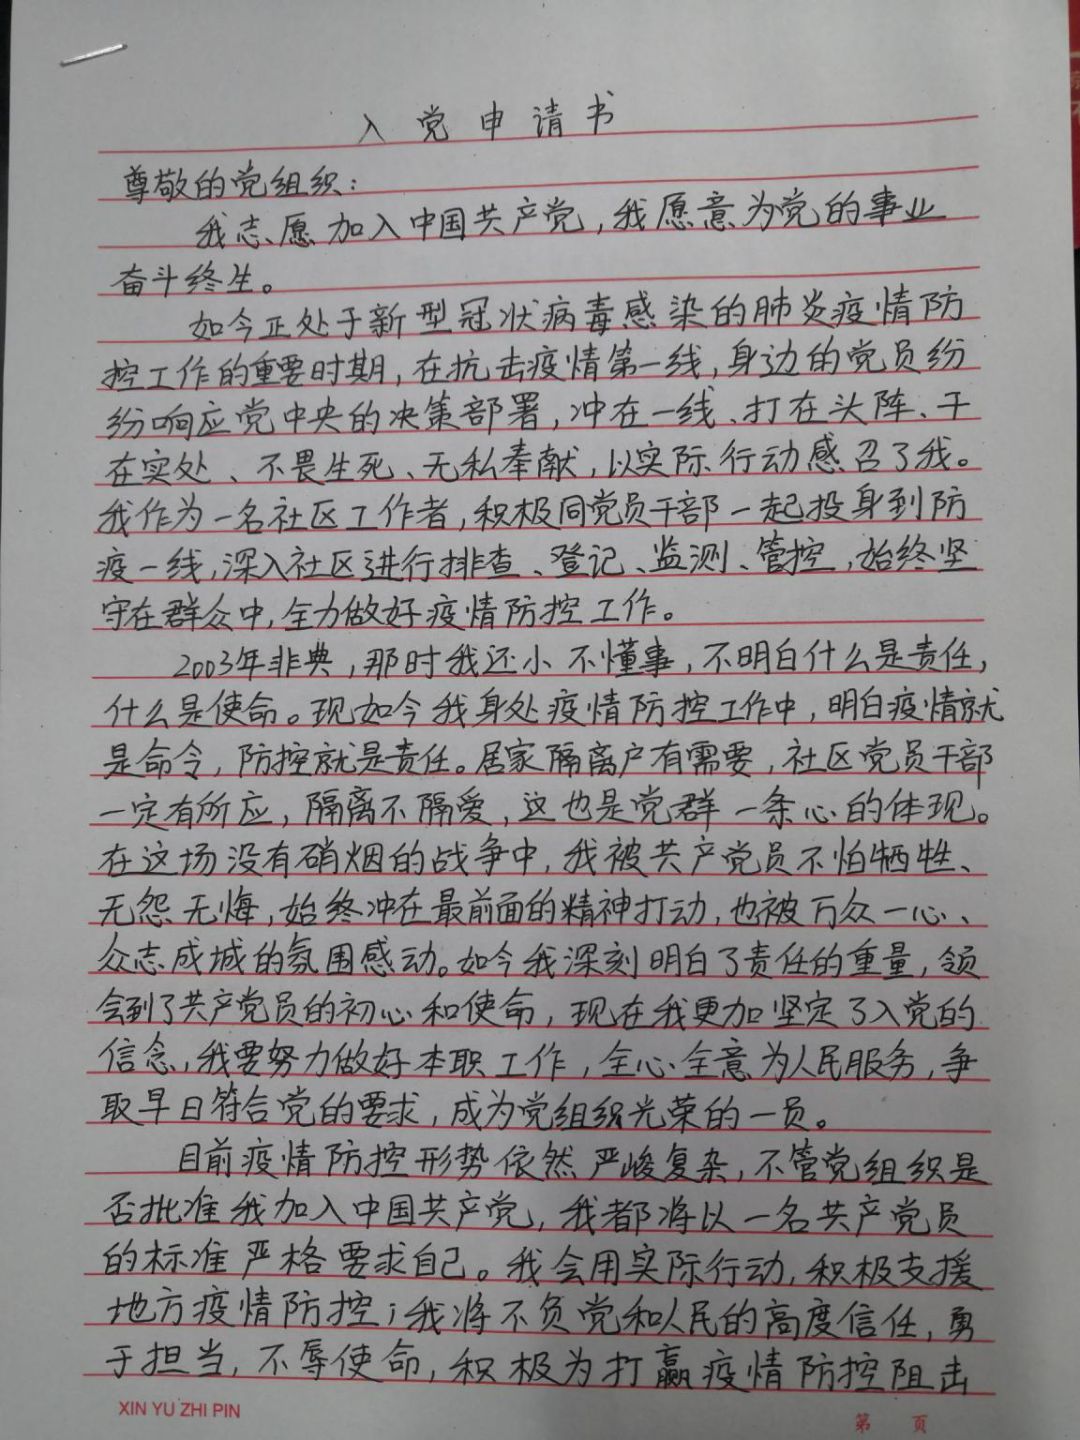 入党申请书
尊敬的党组织：
我志愿加入中国共产党，我愿意为党的事业
奋斗终生。
如今正处于新型冠状病毒感染的肺炎疫情防
控工作的重要时期，在抗击疫情第一线，身边的党员纷
纷响应党中央的决策部署，冲在一线、打在头阵、干
在实处、不畏生死、无私奉献，以实际行动感召了我。
我作为一名社区工作者，积极同党员干部一起投身到防
疫一线，深入社区进行排查、登记、监测、管控，始终坚
守在群众中，全力做好疫情防控工作。
2003年非典，那时我还小不懂事，不明白什么是责任，
什么是使命。现如今我身处疫情防控工作中，明白疫情就
是命令，防控就是责任。居家隔离户有需要，社区党员干部
一定有所应，隔离不隔爱，这也是党群一条心的体现。
在这场没有硝烟的战争中，我被共产党员不怕牺牲、
无怨无悔，始终冲在最前面的精神打动，也被万众一心、
众志成城的氛围感动。如今我深刻明白了责任的重量，领
会到了共产党员的初心和使命，现在我更加坚定了入党的
信念，我要努力做好本职工作，全心全意为人民服务，争
取早日符合党的要求，成为党组织光荣的一员。
目前疫情防控形势依然严峻复杂，不管党组织是
否批准我加入中国共产党，我都将以一名共产党员
的标准严格要求自己。我会用实际行动，积极支援
地方疫情防控；我将不负党和人民的高度信任，勇
于担当，不辱使命，积极为打赢疫情防控阻击
XIN YU ZHI PIN
第 页